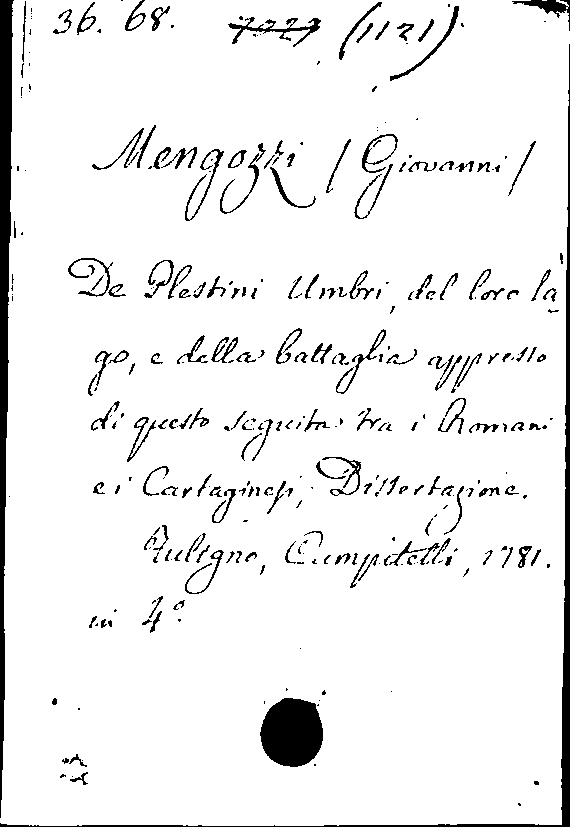 36. 68. 7027 (1121).
Mengozzi /Giovanni/
De Plestini Umbri, del loro la-
go, e della battaglia appresso
di questo seguita tra i Romani
e i Cartaginesi, Dissertazione.
Fuligno, Campitelli, 1781.
in 4°.